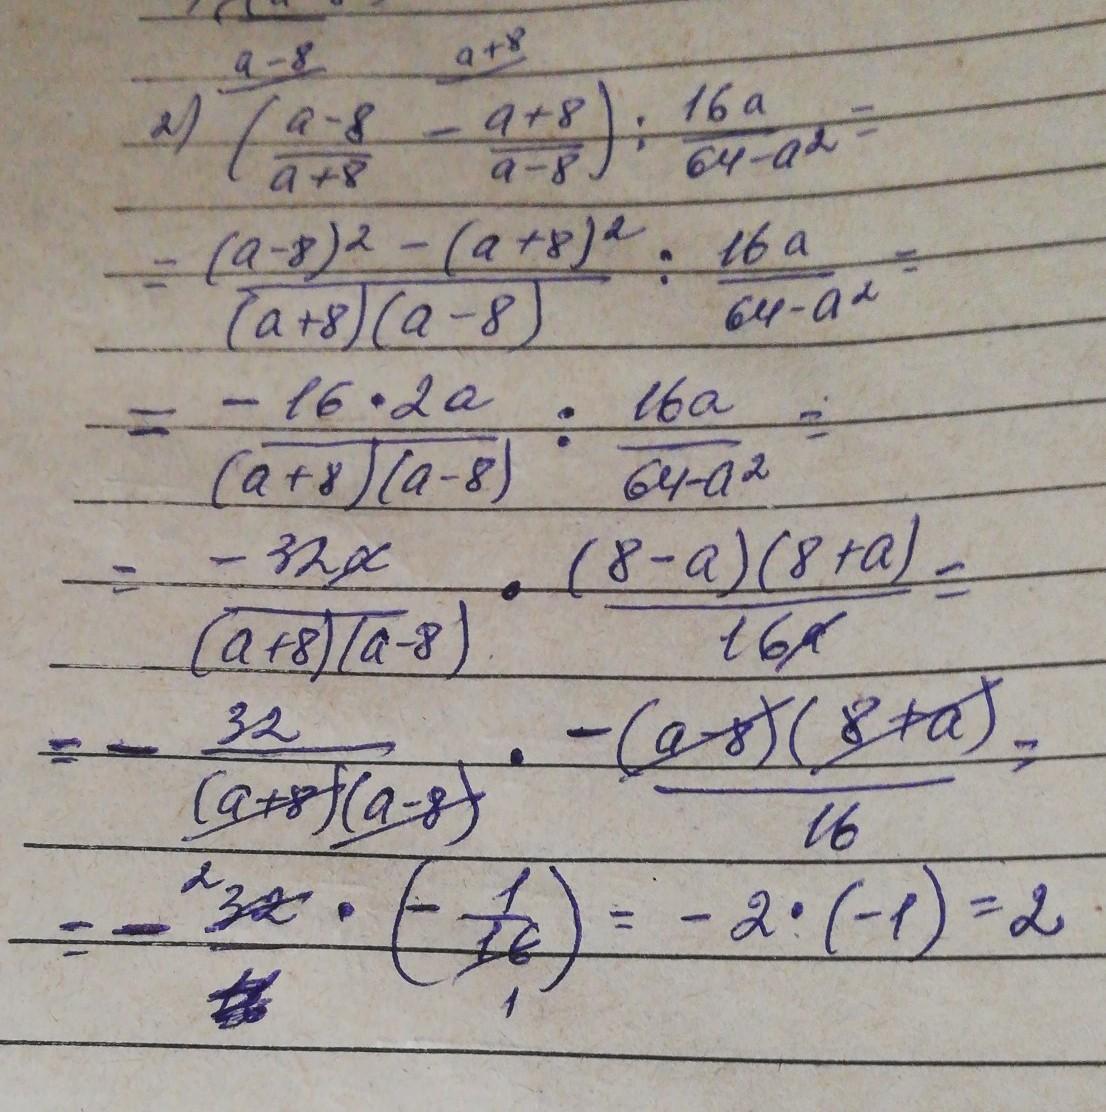 a-8 a+8
2) (a-8/a+8 - a+8/a-8) : 16a/64-a² =
= (a-8)² - (a+8)²/(a+8)(a-8) : 16a/64-a² =
= -16·2a/(a+8)(a-8) : 16a/64-a² =
= -32a/(a+8)(a-8) · (8-a)(8+a)/16a =
= - 32/(a+8)(a-8) · -(a-8)(8+a)/16 =
= - 2 32 · (- 1/16 1) = -2·(-1) = 2